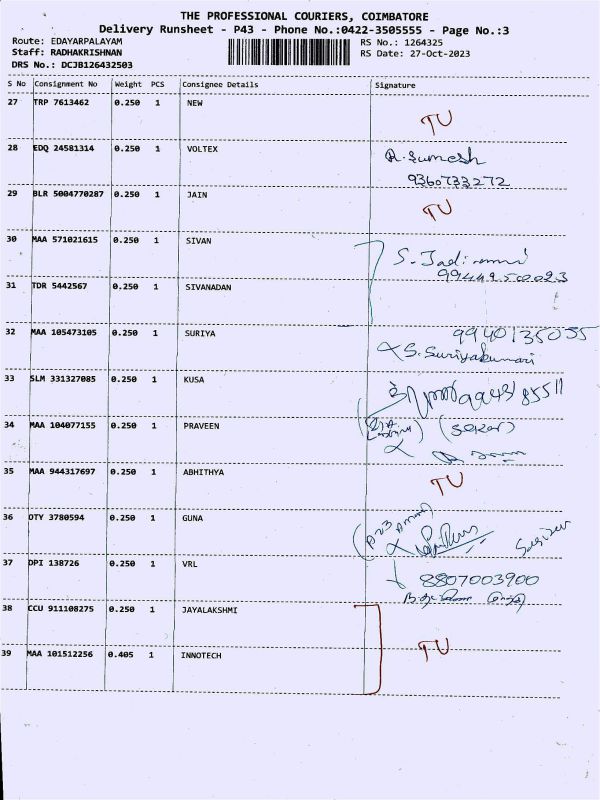 THE PROFESSIONAL COURIERS, COIMBATORE
Delivery Runsheet - P43 - Phone No.:0422-3505555 - Page No.:3
Route: EDAYARPALAYAM RS No.: 1264325
Staff: RADHAKRISHNAN RS Date: 27-Oct-2023
DRS No.: DCJB126432503
S No Consignment No Weight PCS Consignee Details Signature
27 TRP 7613462 0.250 1 NEW
TU
28 EDQ 24581314 0.250 1 VOLTEX
R. Sumesh
9360733272
29 BLR 5004770287 0.250 1 JAIN
TU
30 MAA 571021615 0.250 1 SIVAN
S.
31 TDR 5442567 0.250 1 SIVANADAN
32 MAA 105473105 0.250 1 SURIYA
9940135055
S. Suriyakumari
33 SLM 331327085 0.250 1 KUSA
34 MAA 104077155 0.250 1 PRAVEEN
(Seker)
35 MAA 944317697 0.250 1 ABHITHYA
TU
36 OTY 3780594 0.250 1 GUNA
37 DPI 138726 0.250 1 VRL
8807003900
38 CCU 911108275 0.250 1 JAYALAKSHMI
39 MAA 101512256 0.405 1 INNOTECH
TU